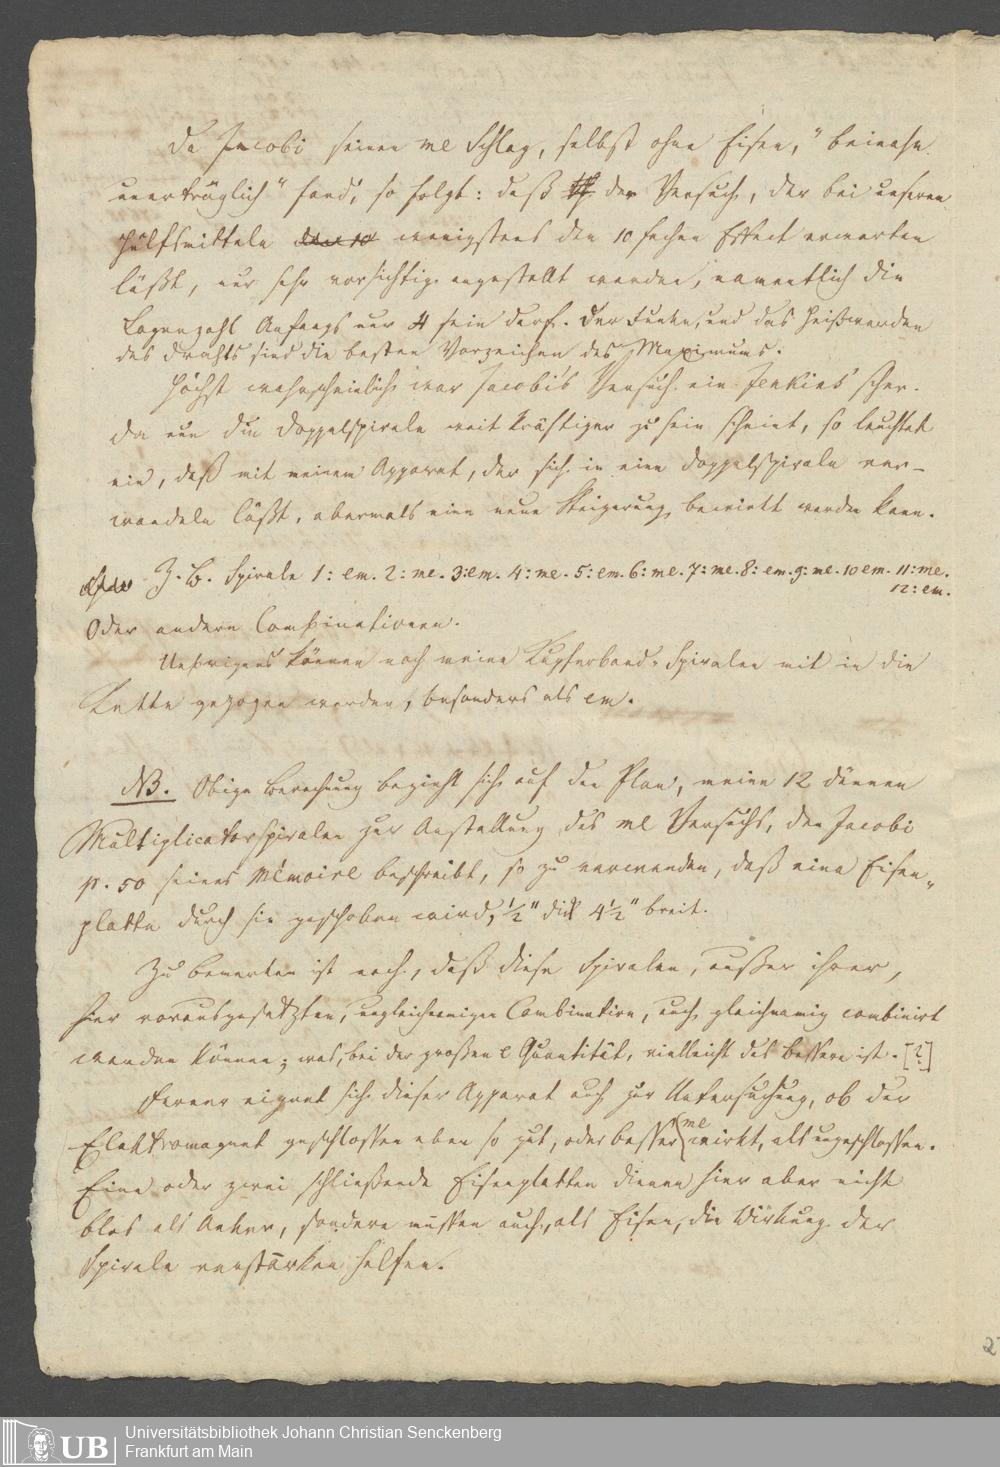 Da Jacobi seinen me Schlag, selbst ohne Eisen, "beinahe
unerträglich" fand, so folgt: daß der Versuch, der bei unseren
Hülfsmitteln wenigstens den 10 fachen Effect erwarten
läßt, nur sehr vorsichtig angestellt werden, namentlich die
Lagenzahl Anfangs nur 4 sein darf. Der Funken, und das Heißwerden
des Drahts sind die besten Vorzeichen des Maximums.
Höchst wahrscheinlich war Jacobi's Versuch ein Jenkins'scher.
Da nun die Doppelspirale weit kräftiger zu sein scheint, so leuchtet
ein, daß mit meinem Apparat, der sich in eine Doppelspirale ver-
wandeln läßt, abermals eine neue Steigerung bewirkt werden kann.
Z. B. Spirale 1: em. 2: me. 3: em. 4: me. 5: em. 6: me. 7: me. 8: em. 9: me. 10 em. 11: me.
12: em.
Oder andere Combinationen.
Uebrigens können noch meine Kupferband-Spiralen mit in die
Kette gezogen werden, besonders als em.
NB. Obige Berechnung bezieht sich auf den Plan, meine 12 dünnen
Multiplicatorspiralen zur Anstellung des me Versuchs, den Jacobi
p. 50 seines Mémoire beschreibt, so zu verwenden, daß eine Eisen-
platte durch sie geschoben wird, 1/2" dick 4 1/2" breit.
Zu bemerken ist noch, daß diese Spiralen, außer ihrer,
hier vorausgesetzten, ungleichnamigen Combination, auch gleichnamig combinirt
werden können; was, bei der großen e Quantität, vielleicht das Bessere ist. [?]
Ferner eignet sich dieser Apparat auch zur Untersuchung, ob der
Elektromagnet geschlossen eben so gut, oder besser me wirkt, als ungeschlossen.
Eine oder zwei schließende Eisenplatten dienen hier aber nicht
blos als Anker, sondern müssen auch, als Eisen, die Wirkung der
Spirale verstärken helfen.
Universitätsbibliothek Johann Christian Senckenberg
Frankfurt am Main
UB